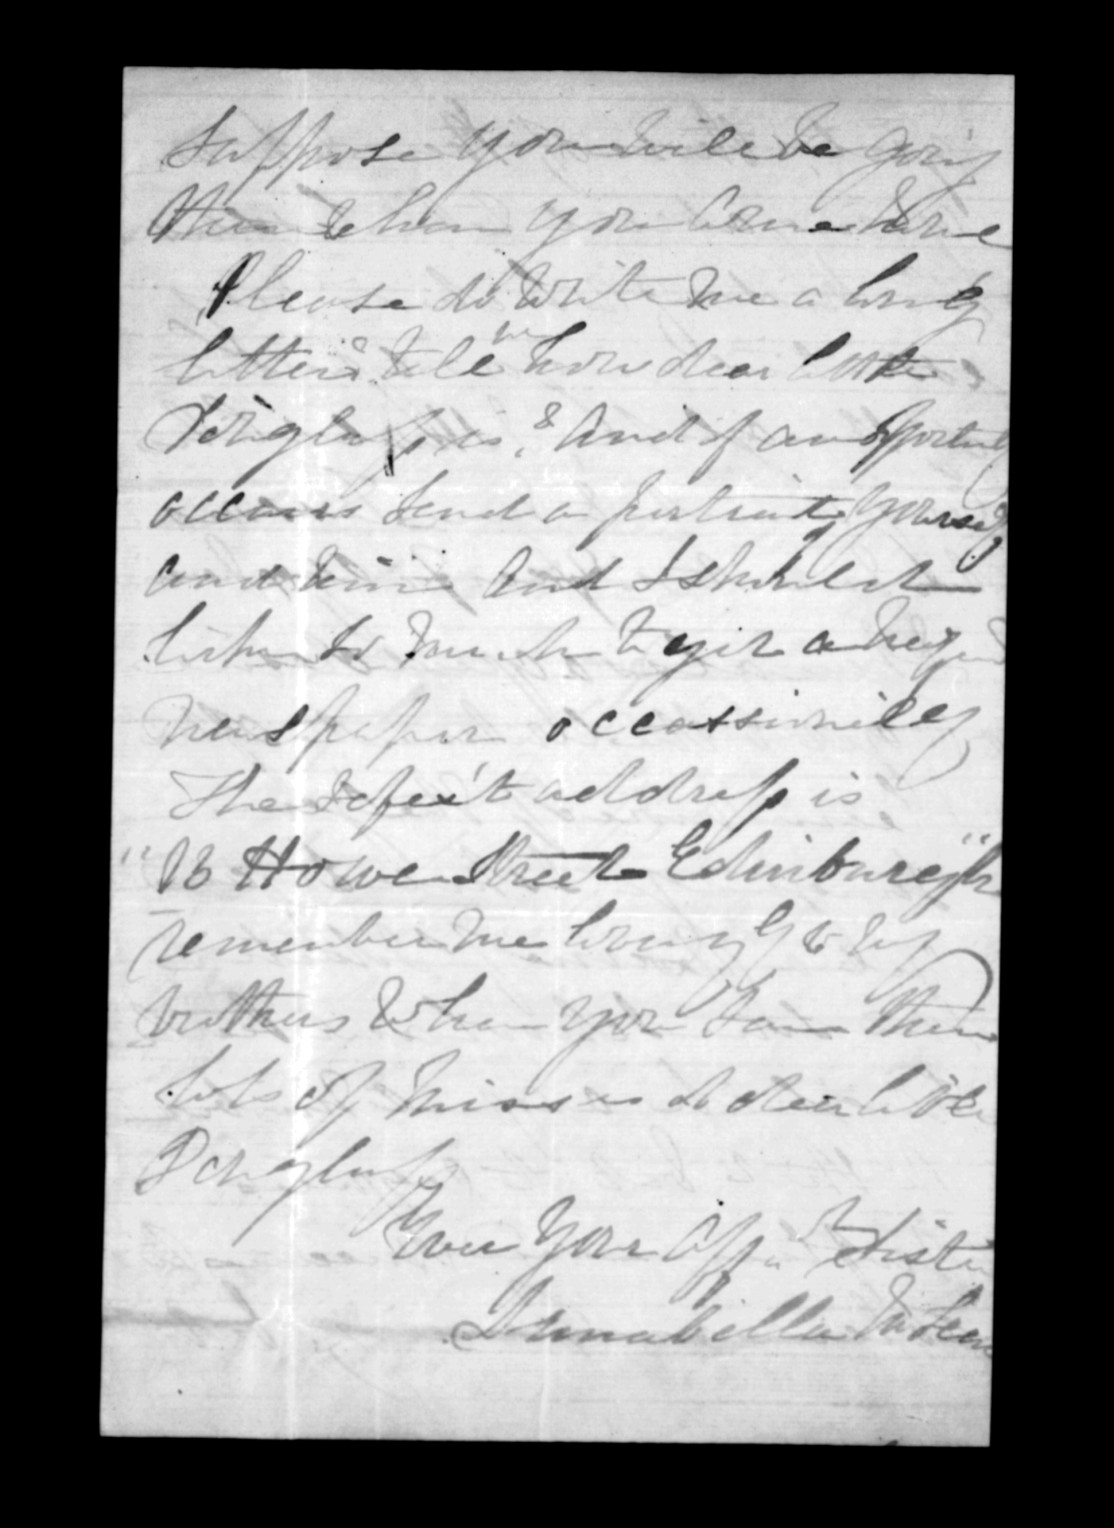 Suppose you will be going
then when you come home
Please do write me a long
letter & tell me how dear little
Douglass is, & and if an opportunity
occurs send a portrait of yourself
and him and I should
like so much to get a
newspaper occassionilly
The safest address is
"18 Howe Street Edinburgh"
remember me lovingly to my
brothers when you see them
lots of kisses to dear little
Douglass
Ever your aff. Sister
Annabella McLean